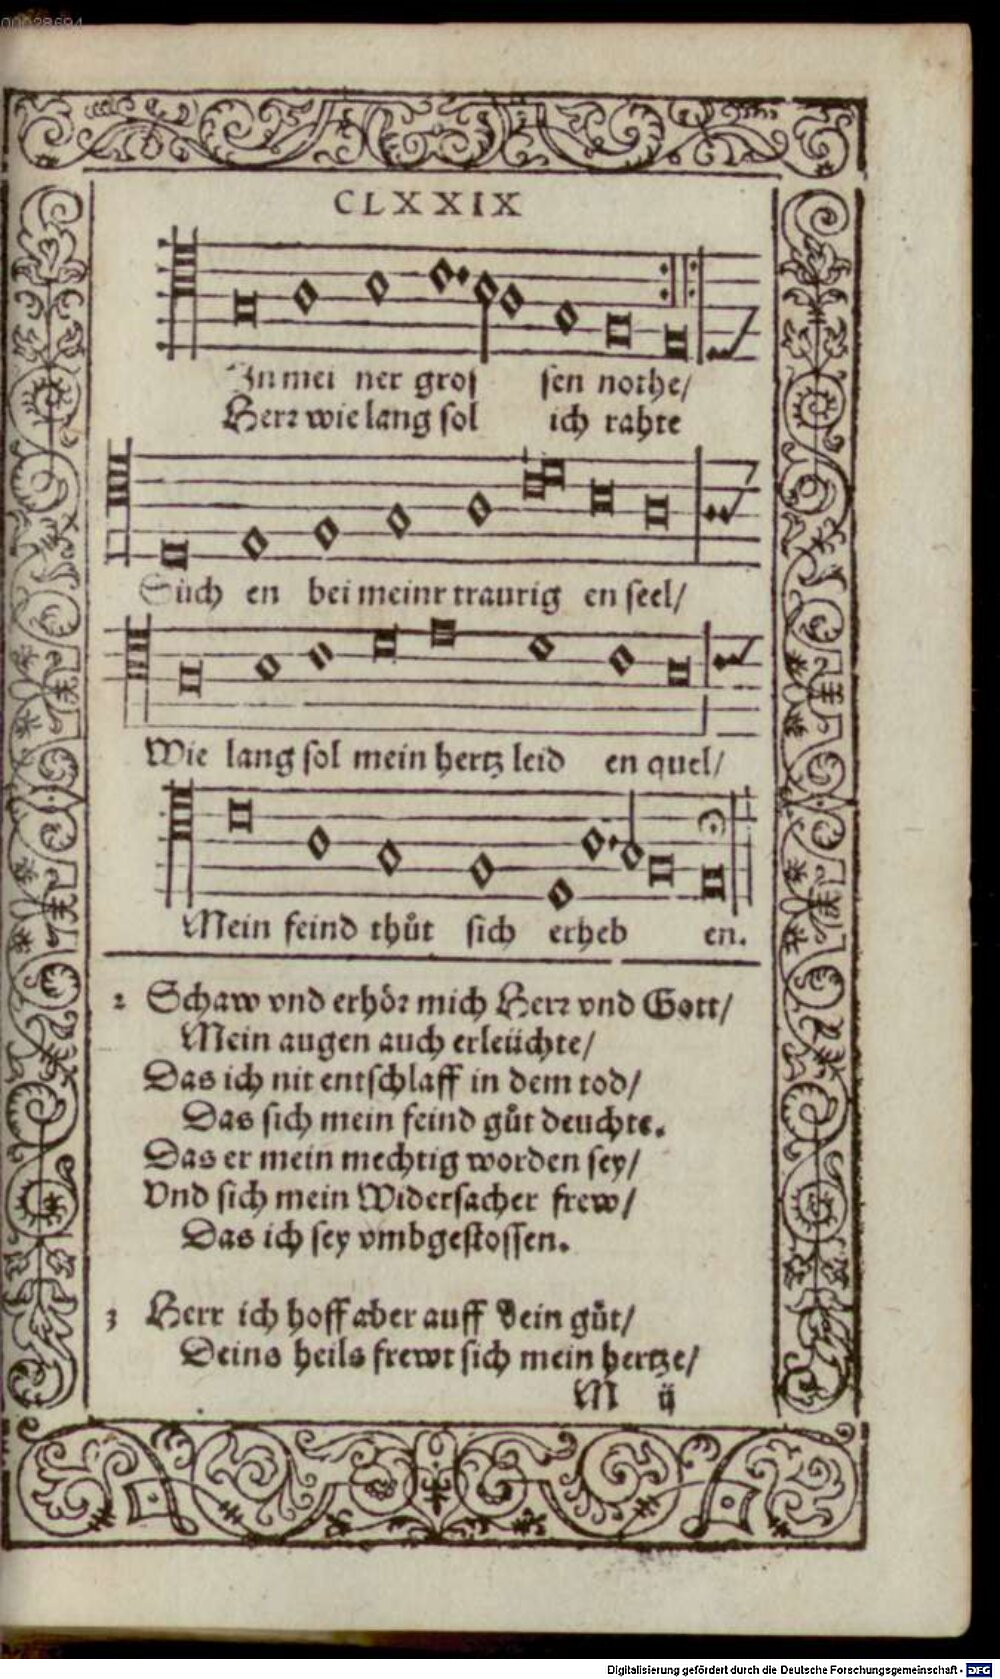 00028694
CLXXIX
In mei ner gros sen nothe/
Herr wie lang sol ich rahte
Sůch en bei meinr traurig en seel/
Wie lang sol mein hertz leid en quel/
Mein feind thůt sich erheb en.
2 Schaw vnd erhör mich Herr vnd Gott/
Mein augen auch erleüchte/
Das ich nit entschlaff in dem tod/
Das sich mein feind gůt deuchte.
Das er mein mechtig worden sey/
Vnd sich mein Widersacher frew/
Das ich sey vmbgestossen.
3 Herr ich hoff aber auff dein gůt/
Deins heils frewt sich mein hertze/
M ij
Digitalisierung gefördert durch die Deutsche Forschungsgemeinschaft - DFG